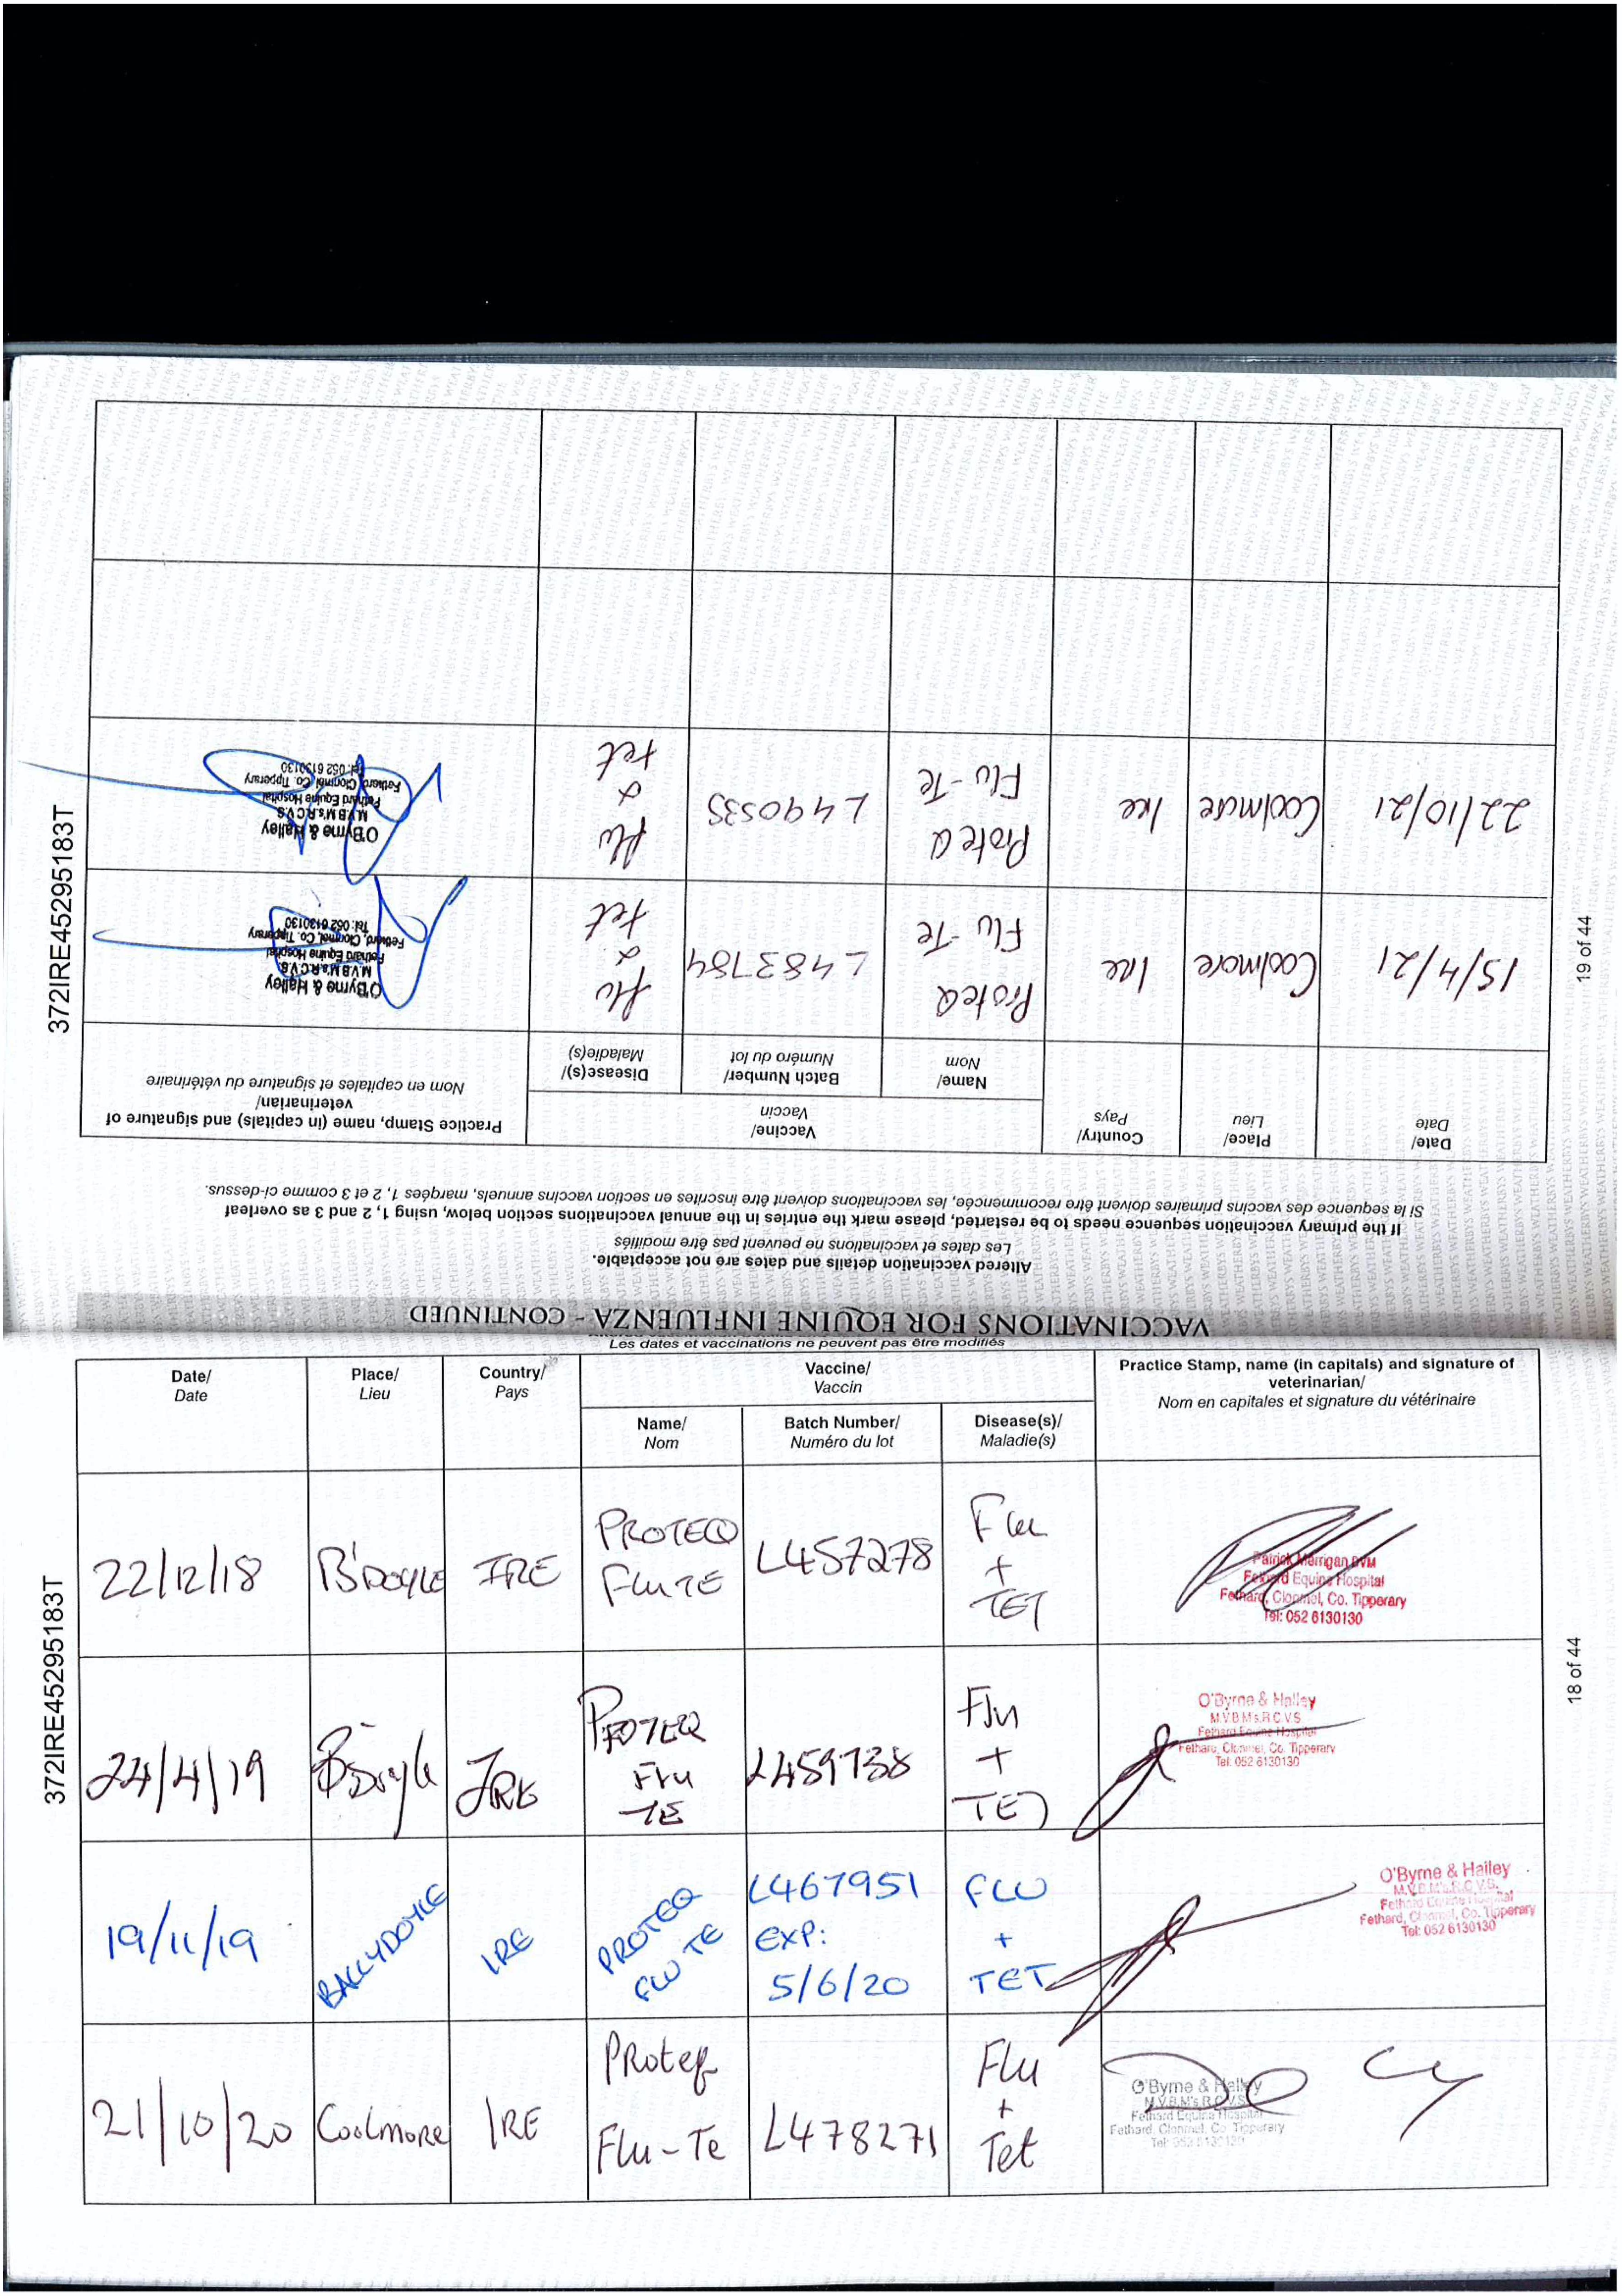 Les dates et vaccinations ne peuvent pas être modifiés
Date/
Date
Place/
Lieu
Country/
Pays
Vaccine/
Vaccin
Name/
Nom
Batch Number/
Numéro du lot
Disease(s)/
Maladie(s)
Practice Stamp, name (in capitals) and signature of
veterinarian/
Nom en capitales et signature du vétérinaire
22/12/18
B'DOYLE
IRE
PROTEQ
Flu TE
L457278
Flu
+
TET
Patrick Merrigan DVM
Fethard Equine Hospital
Fethard, Clonmel, Co. Tipperary
Tel: 052 6130130
24/4/19
B'Doyle
IRE
PROTEQ
Flu
TE
L459738
Flu
+
TET
O'Byrne & Halley
M.V.B M's.R.C.V.S
Fethard Equine Hospital
Fethard, Clonmel, Co. Tipperary
Tel: 052 6130130
19/11/19
BALLYDOYLE
IRE
PROTEQ
FLU TE
L467951
EXP:
5/6/20
FLU
+
TET
O'Byrne & Halley
M.V.B.M's.R.C.V.S.
Fethard Equine Hospital
Fethard, Clonmel, Co. Tipperary
Tel: 052 6130130
21/10/20
Coolmore
IRE
Proteq
Flu-Te
L478271
Flu
+
Tet
O'Byrne & Halley
M.V.B.M's R.C.V.S
Fethard Equine Hospital
Fethard, Clonmel, Co. Tipperary
Tel: 052 6130130
372IRE45295183T
18 of 44
VACCINATIONS FOR EQUINE INFLUENZA - CONTINUED
Altered vaccination details and dates are not acceptable.
Les dates et vaccinations ne peuvent pas être modifiés
If the primary vaccination sequence needs to be restarted, please mark the entries in the annual vaccinations section below, using 1, 2 and 3 as overleaf
Si la sequence des vaccins primaires doivent être recommencée, les vaccinations doivent être inscrites en section vaccins annuels, marqées 1, 2 et 3 comme ci-dessus.
Date/
Date
Place/
Lieu
Country/
Pays
Vaccine/
Vaccin
Name/
Nom
Batch Number/
Numéro du lot
Disease(s)/
Maladie(s)
Practice Stamp, name (in capitals) and signature of
veterinarian/
Nom en capitales et signature du vétérinaire
15/4/21
Coolmore
Ire
ProteQ
Flu-Te
L483784
flu
&
tet
O'Byrne & Halley
M.V.B M's R.C.V.S
Fethard Equine Hospital
Fethard, Clonmel, Co. Tipperary
Tel: 052 6130130
22/10/21
Coolmore
Ire
ProteQ
Flu-Te
L490535
flu
&
tet
O'Byrne & Halley
M.V.B M's R.C.V.S
Fethard Equine Hospital
Fethard, Clonmel, Co. Tipperary
Tel: 052 6130130
372IRE45295183T
19 of 44